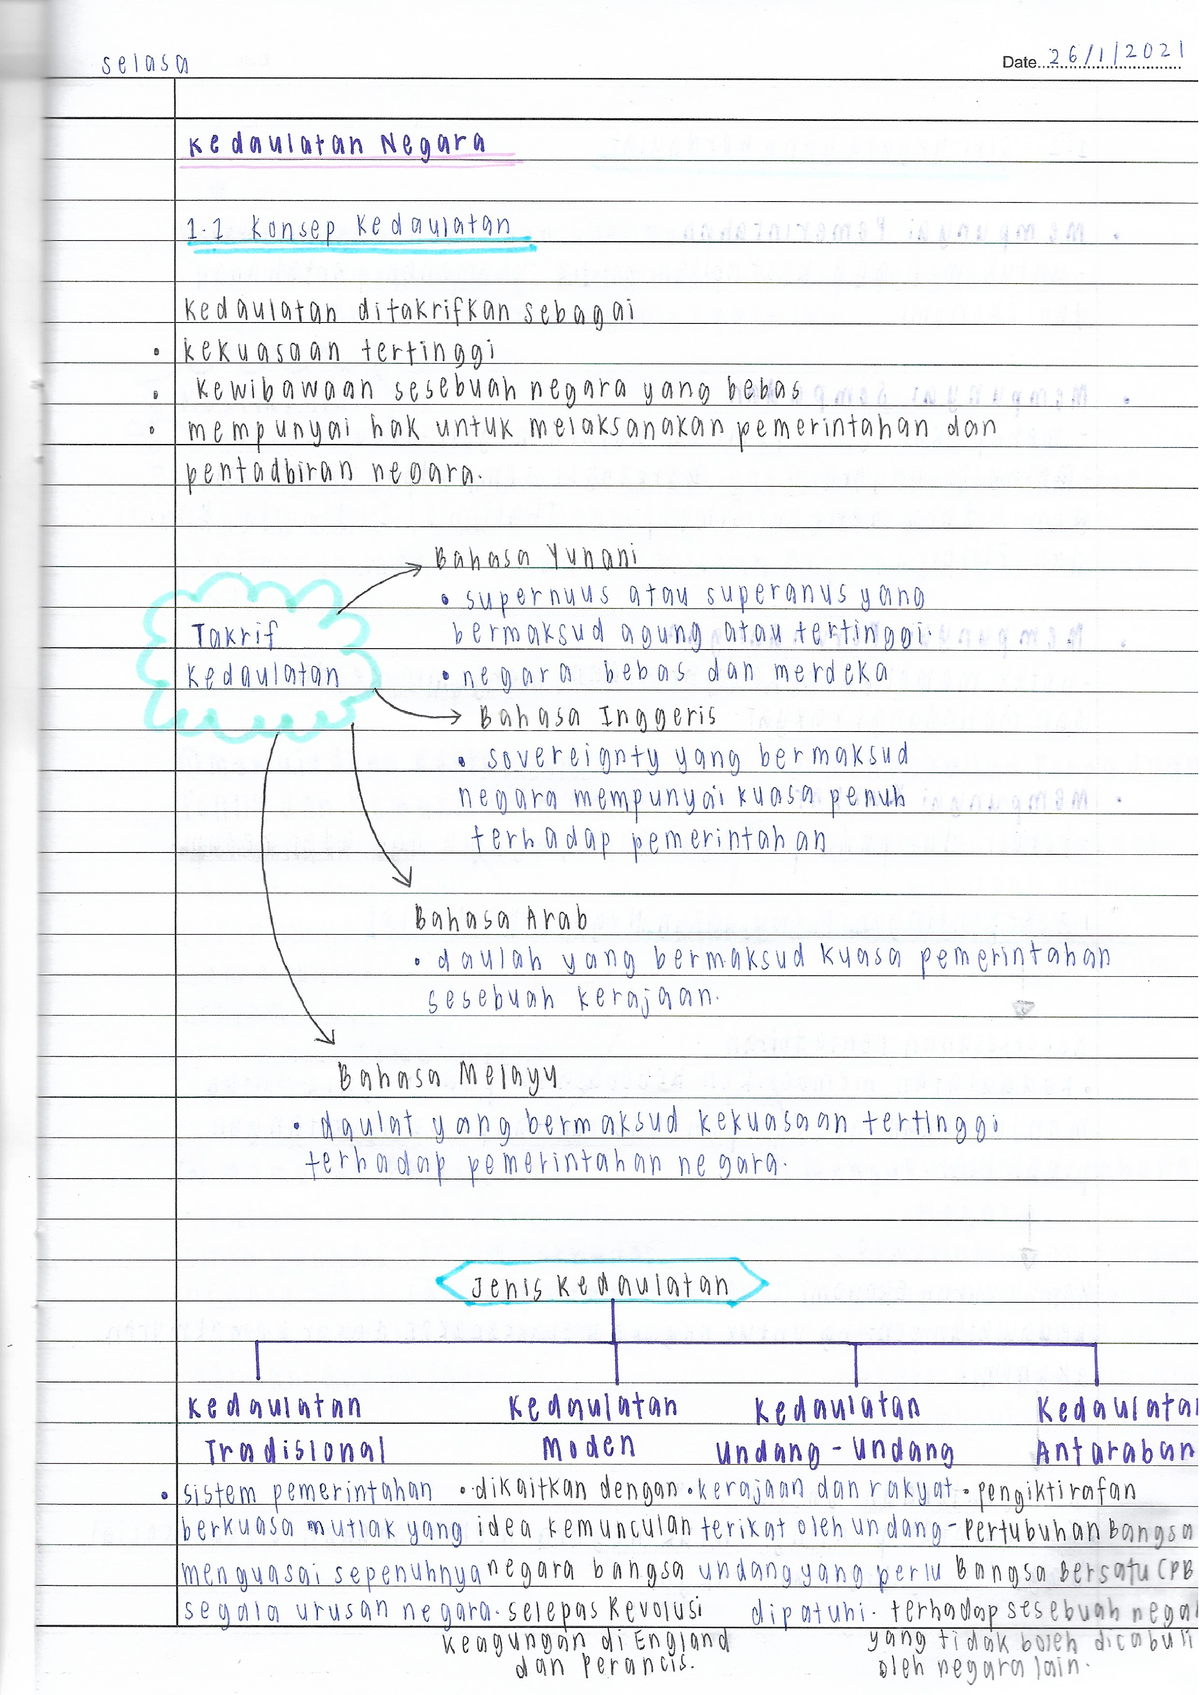 selasa
Date 26/1/2021
Kedaulatan Negara
1.1 Konsep Kedaulatan
Kedaulatan ditakrifkan sebagai
• kekuasaan tertinggi
• kewibawaan sesebuah negara yang bebas
• mempunyai hak untuk melaksanakan pemerintahan dan
pentadbiran negara.
Takrif
Kedaulatan
Bahasa Yunani
• supernuus atau superanus yang
bermaksud agung atau tertinggi.
• negara bebas dan merdeka
Bahasa Inggeris
• sovereignty yang bermaksud
negara mempunyai kuasa penuh
terhadap pemerintahan
Bahasa Arab
• daulah yang bermaksud kuasa pemerintahan
sesebuah kerajaan.
Bahasa Melayu
• daulat yang bermaksud kekuasaan tertinggi
terhadap pemerintahan negara.
Jenis Kedaulatan
Kedaulatan
Tradisional
• sistem pemerintahan
berkuasa mutlak yang
menguasai sepenuhnya
segala urusan negara.
Kedaulatan
Moden
• dikaitkan dengan
idea kemunculan
negara bangsa
selepas Revolusi
Keagungan di England
dan Perancis.
Kedaulatan
Undang-Undang
• kerajaan dan rakyat
terikat oleh undang-
undang yang perlu
dipatuhi.
Kedaulata
Antaraban
• pengiktirafan
Pertubuhan Bangsa
Bangsa Bersatu (PB
terhadap sesebuah nega
yang tidak boleh dicabuli
oleh negara lain.